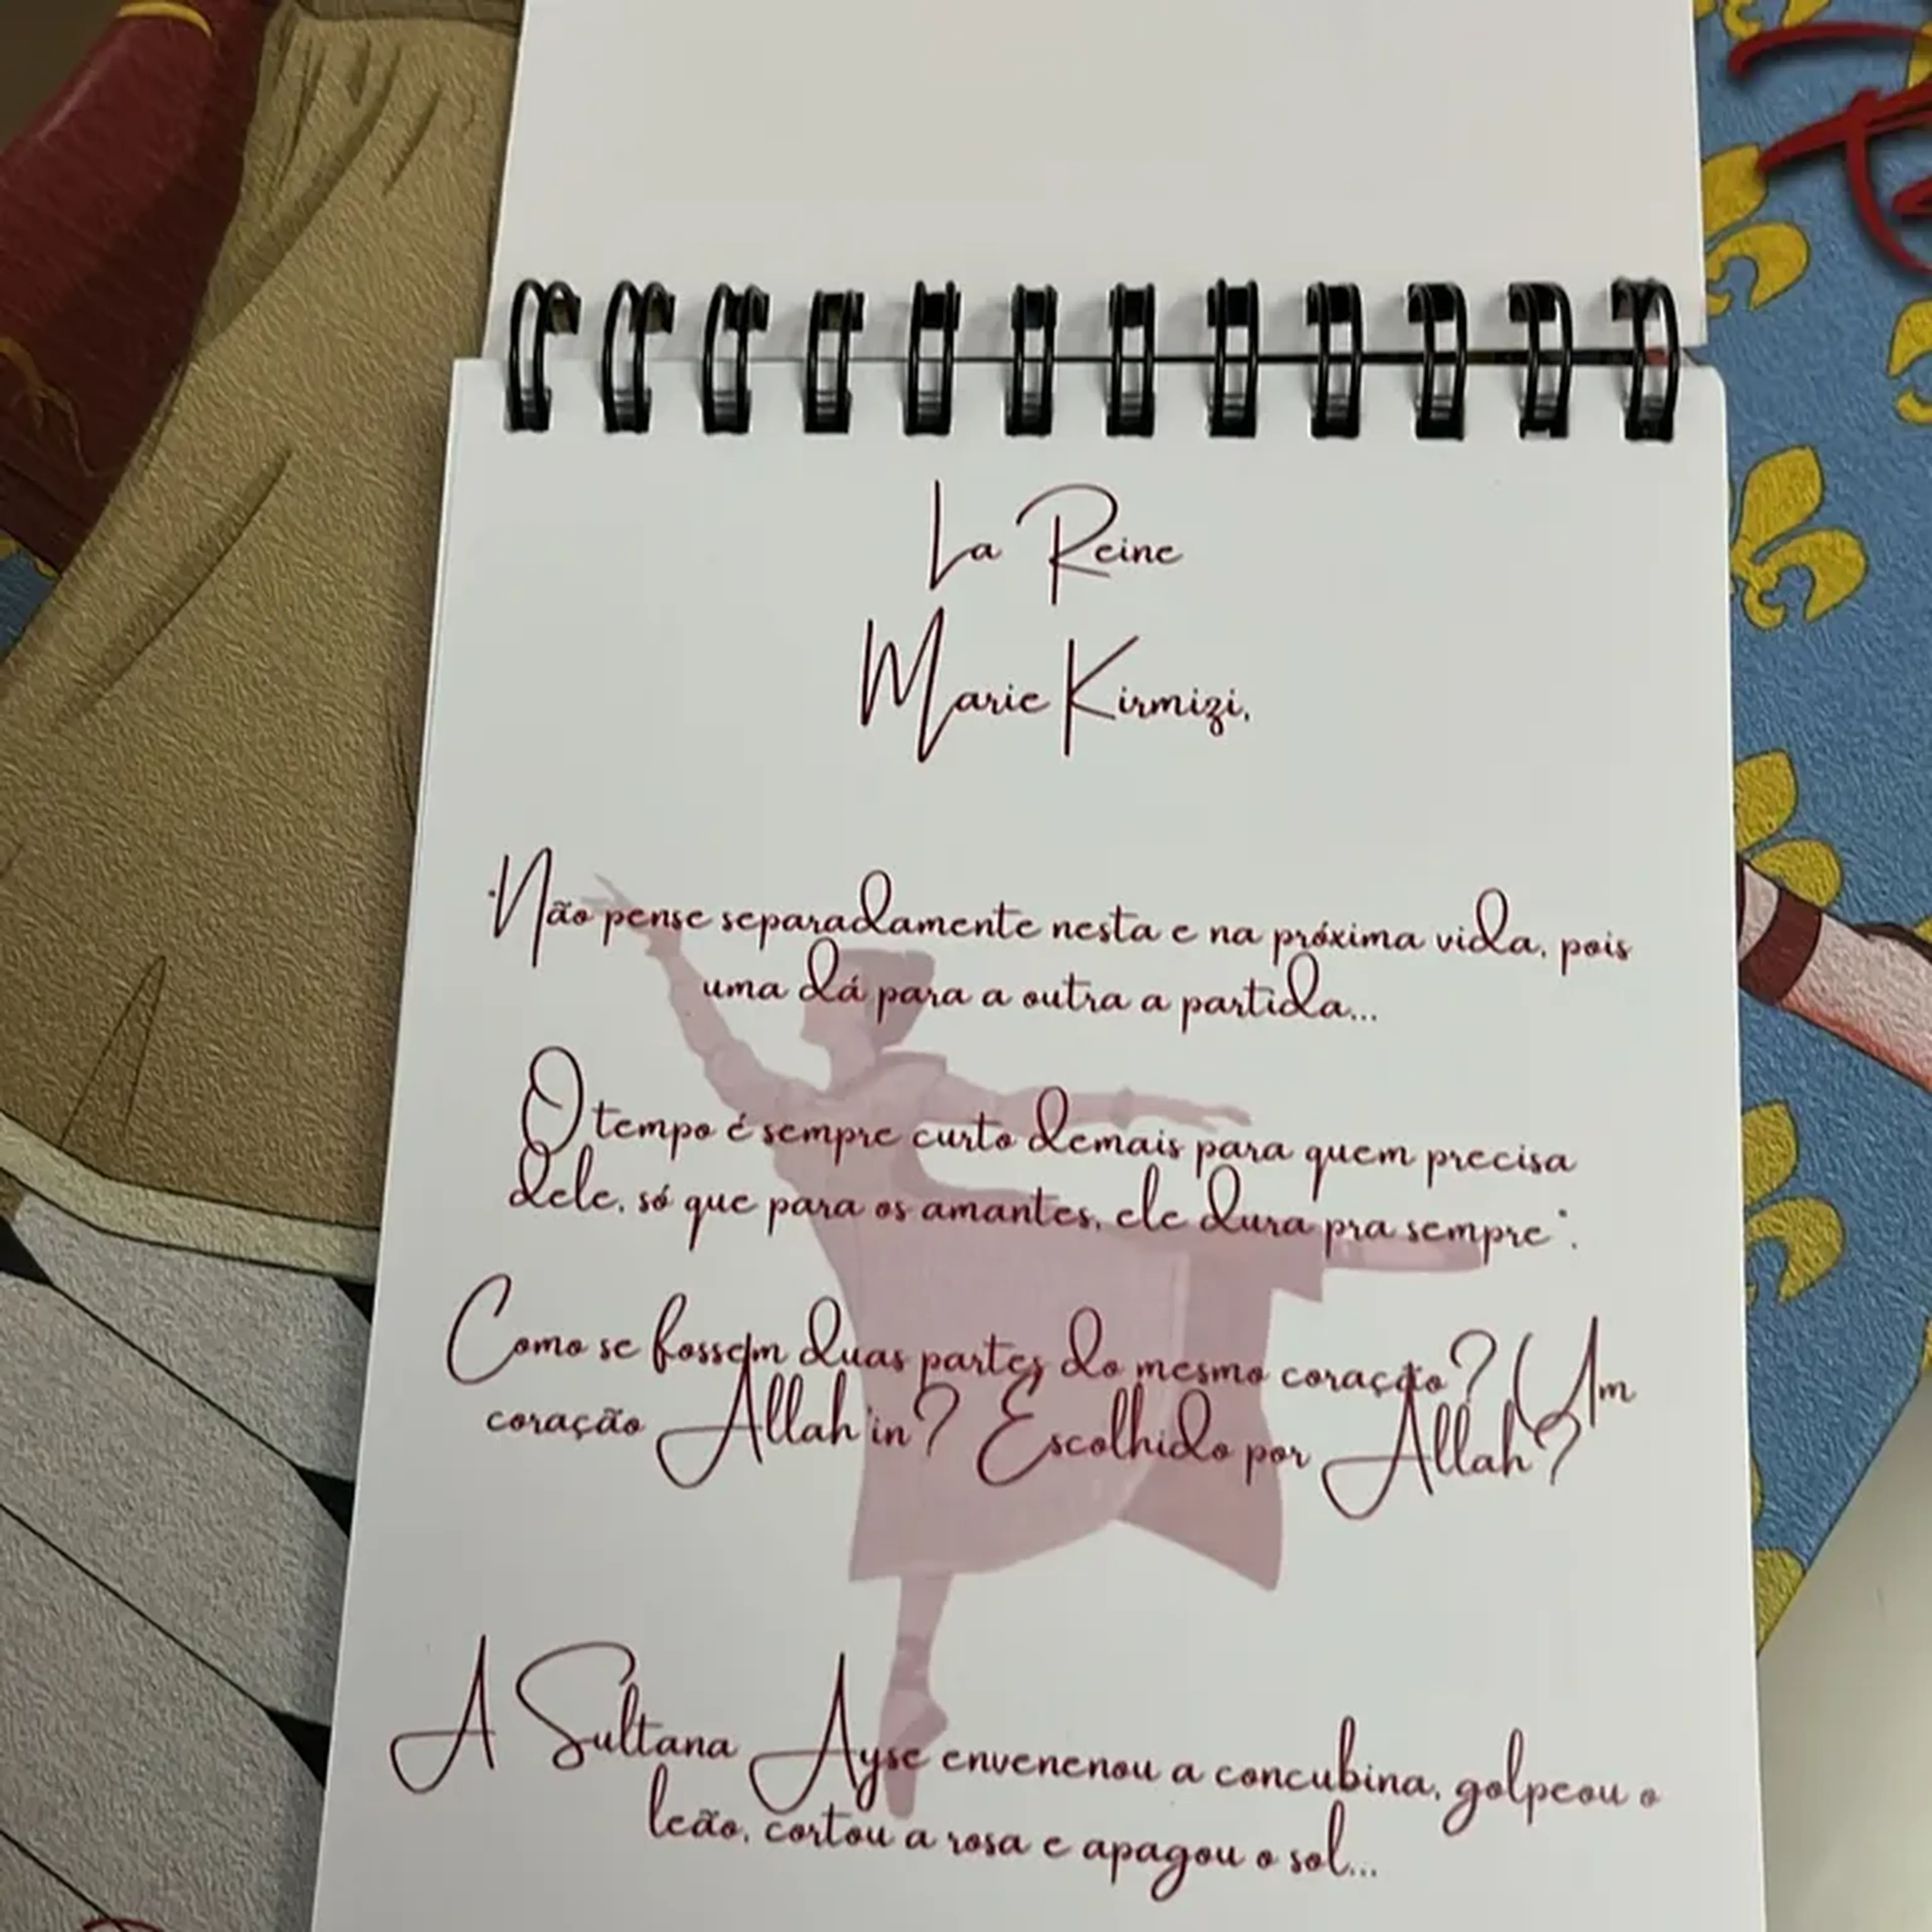 La Reine
Marie Kirmizi,
"Não pense separadamente nesta e na próxima vida, pois
uma dá para a outra a partida...
O tempo é sempre curto demais para quem precisa
dele, só que para os amantes, ele dura pra sempre".
Como se fossem duas partes do mesmo coração? Um
coração Allah'in? Escolhido por Allah?
A Sultana Ayse envenenou a concubina, golpeou o
leão, cortou a rosa e apagou o sol...